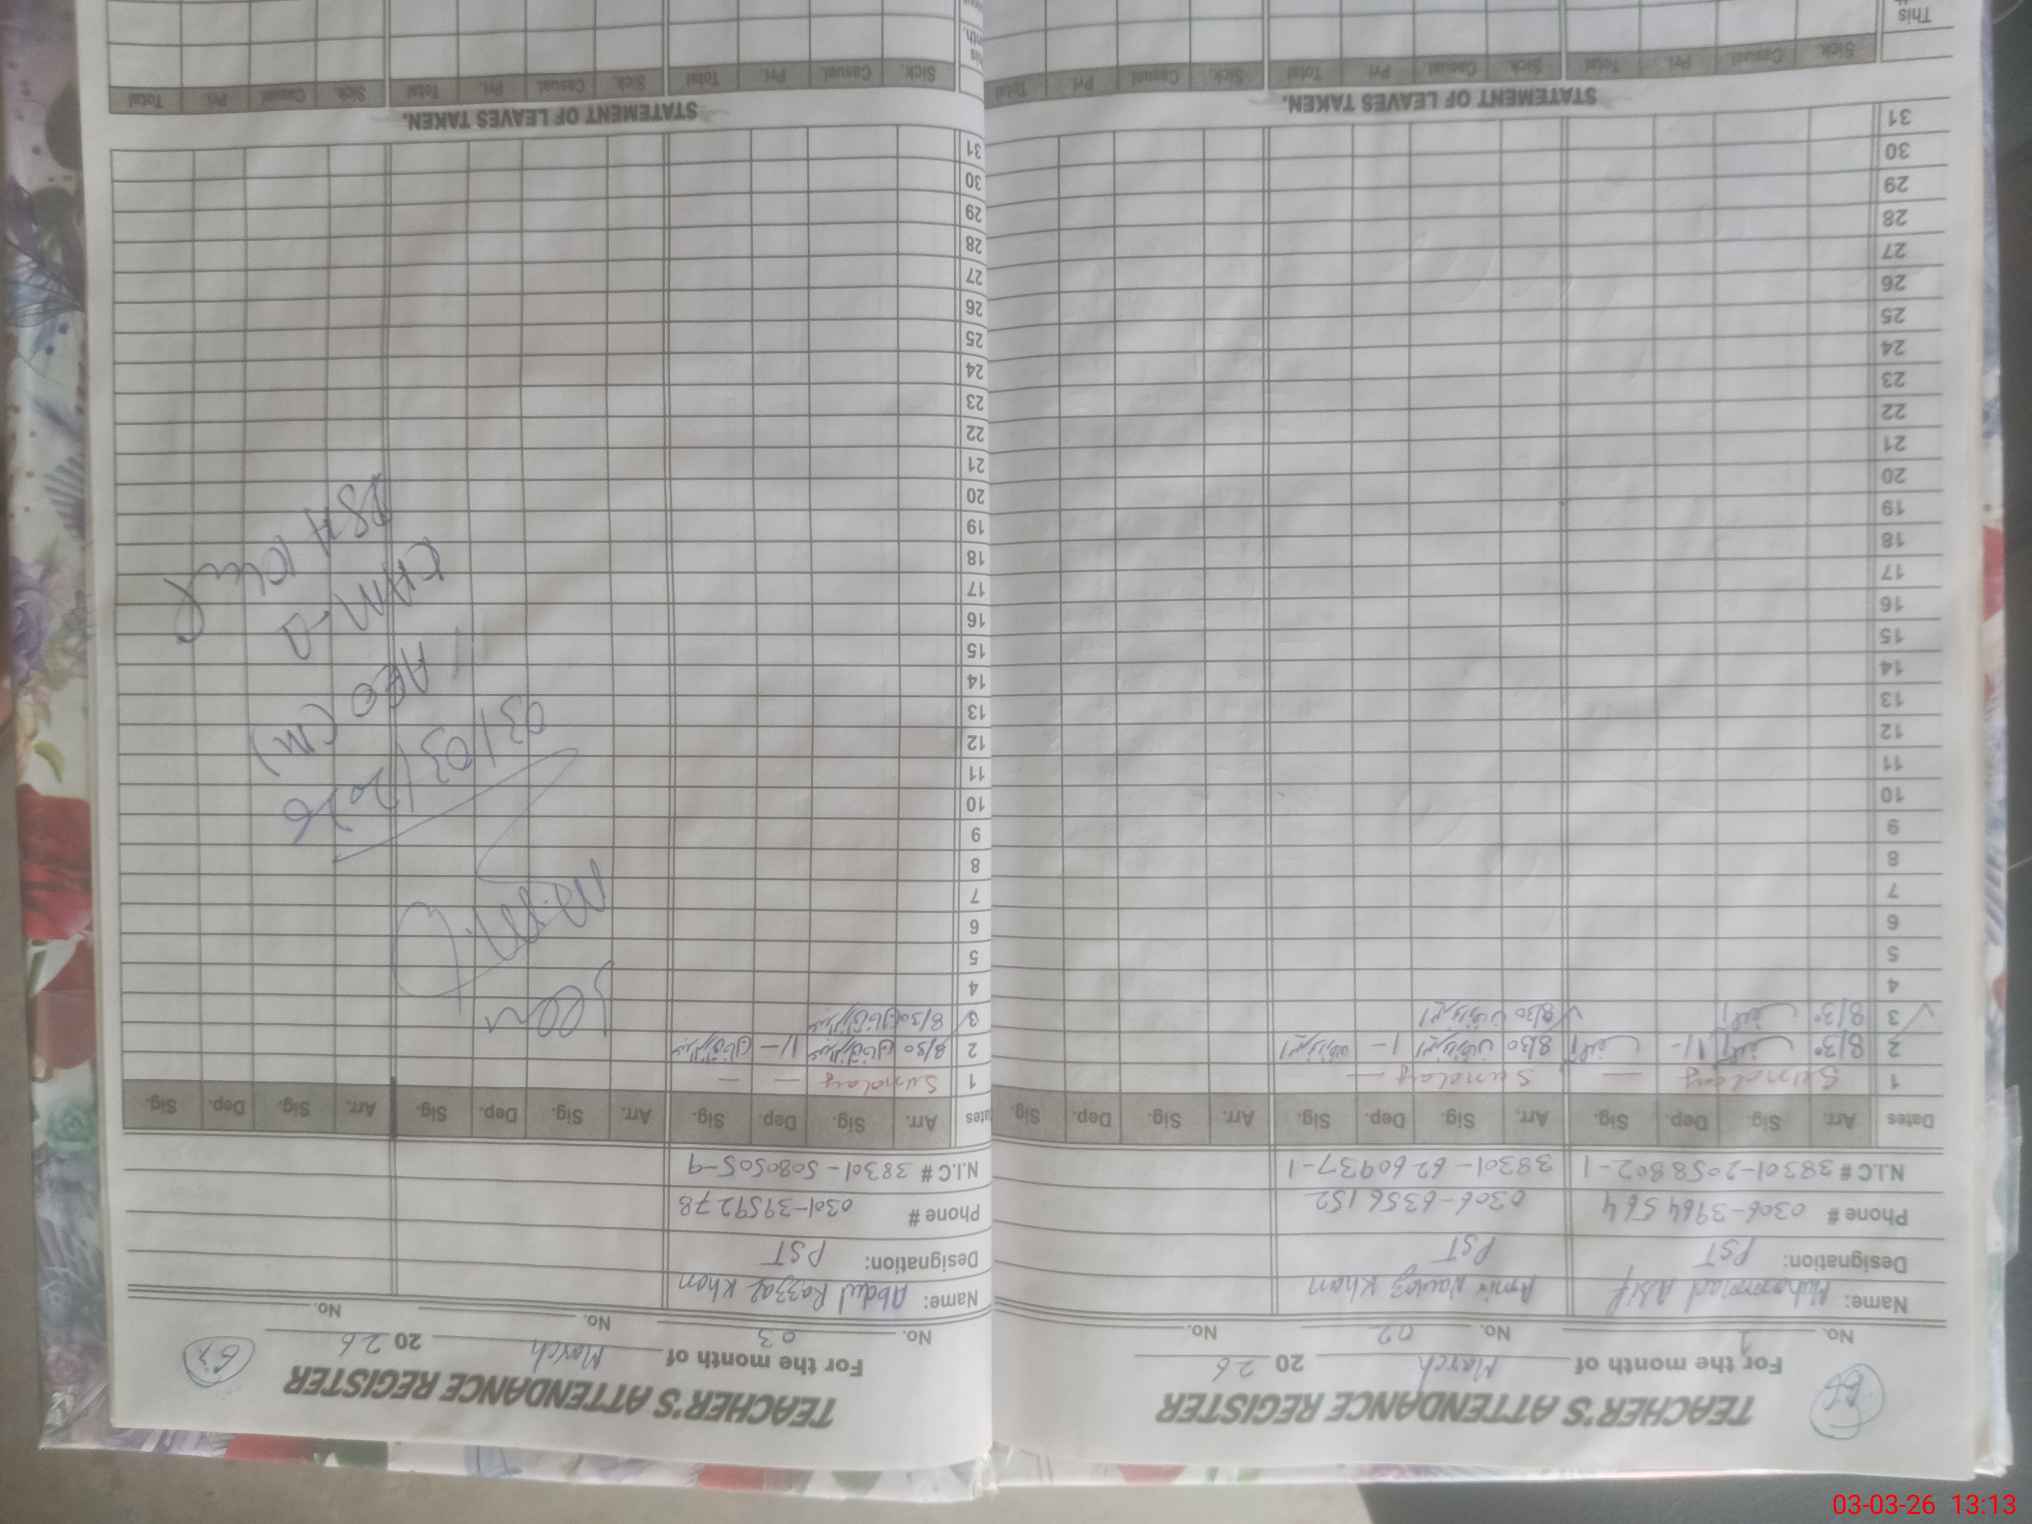 TEACHER'S ATTENDANCE REGISTER
For the month of March 2026
No. 1 No. 02 No.
Name: Muhammad Asif Amir Nawaz Khan
Designation: PST PST
Phone # 0306-3964564 0306-6356152
N.I.C # 38301-2058802-1 38301-6260937-1
Dates Arr. Sig. Dep. Sig. Arr. Sig. Dep. Sig. Arr. Sig. Dep. Sig.
1 Sunday — Sunday —
2 8/30 8/30
3 8/30 8/30
4
5
6
7
8
9
10
11
12
13
14
15
16
17
18
19
20
21
22
23
24
25
26
27
28
29
30
31
STATEMENT OF LEAVES TAKEN.
Sick. Casual. Pri. Total Sick. Casual. Pri. Total Sick. Casual. Pri. Total
This
TEACHER'S ATTENDANCE REGISTER
For the month of March 2026
67
No. 03 No. No.
Name: Abdul Razzaq Khan
Designation: PST
Phone # 0301-3959278
N.I.C # 38301-5080505-9
Dates Arr. Sig. Dep. Sig. Arr. Sig. Dep. Sig. Arr. Sig.
1 Sunday — —
2 8/30 عبدالرزاق خان
3 8/30 عبدالرزاق خان
4
5
6
7
8
9
10
11
12
13
14
15
16
17
18
19
20
21
22
23
24
25
26
27
28
29
30
31
Seen
03/03/2026
AEO (M)
STATEMENT OF LEAVES TAKEN.
Sick. Casual. Pri. Total Sick. Casual. Pri. Total Sick. Casual Pri. Total
03-03-26 13:13